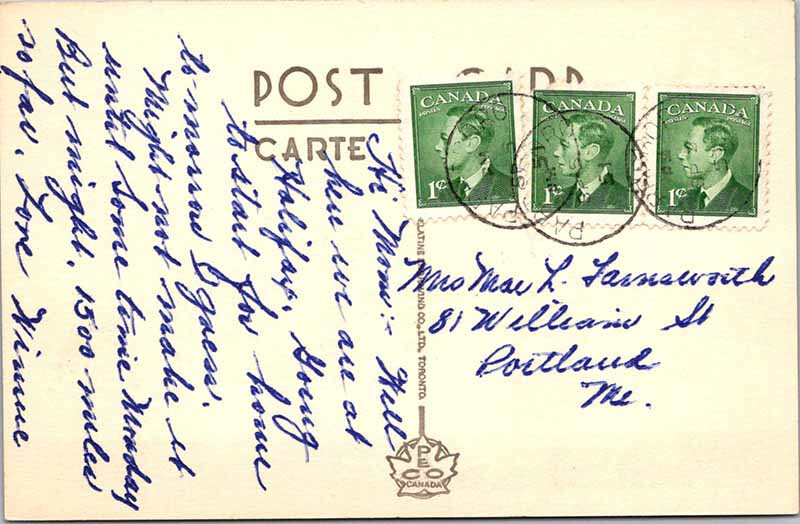 POST CARD
CARTE
CANADA
POSTES POSTAGE
1¢
CANADA
POSTES POSTAGE
1¢
CANADA
POSTES POSTAGE
1¢
Hi Mom:- Well
here we are at
Halifax. Going
to start for home
tomorrow I guess.
Might not make it
until some time Monday
But might. 1500 miles
so far. Love Winnie
Mrs Mae L. Farnsworth
81 William St
Portland
Me.
CO., LTD., TORONTO.
PECO
CANADA